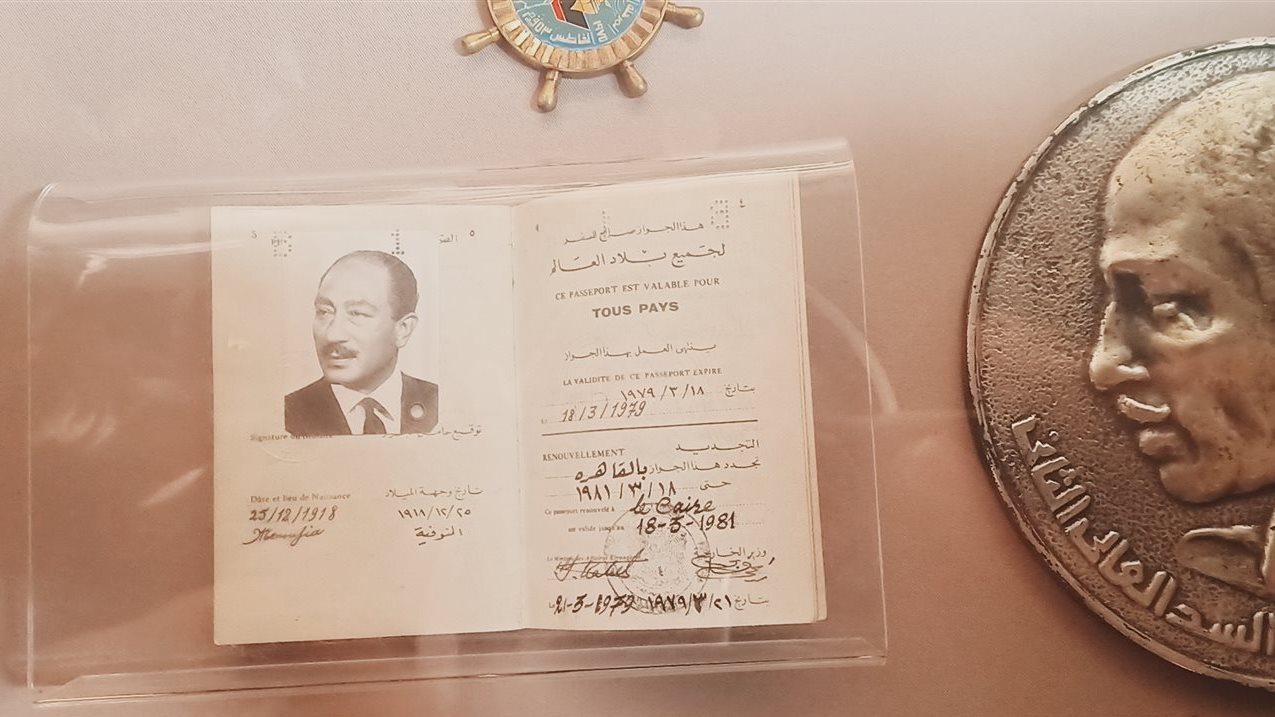 الخامس
٥
الصف
5
Signature du titulaire
توقيع حامل
Date et lieu de Naissance
تاريخ وجهة الميلاد
25/12/1918
١٩١٨/١٢/٢٥
Menufia
المنوفية
٤
هذا الجواز صالح للسفر
لجميع بلاد العالم
CE PASSEPORT EST VALABLE POUR
TOUS PAYS
ينتهى العمل بهذا الجواز
LA VALIDITE DE CE PASSEPORT EXPIRE
بتاريخ ١٨ / ٣ / ١٩٧٩
Le 18/3/1979
التجديد
RENOUVELLEMENT
تجدد هذا الجواز بالقاهره
حتى ١٨ / ٣ / ١٩٨١
Ce passeport renouvelé à le Caire
est valide jusqu'au 18-3-1981
وزير الخارجية
Le Ministre des Affaires Etrangères
Le 21-3-1979 بتاريخ ٢١/٣/١٩٧٩
السد العالى الثانى